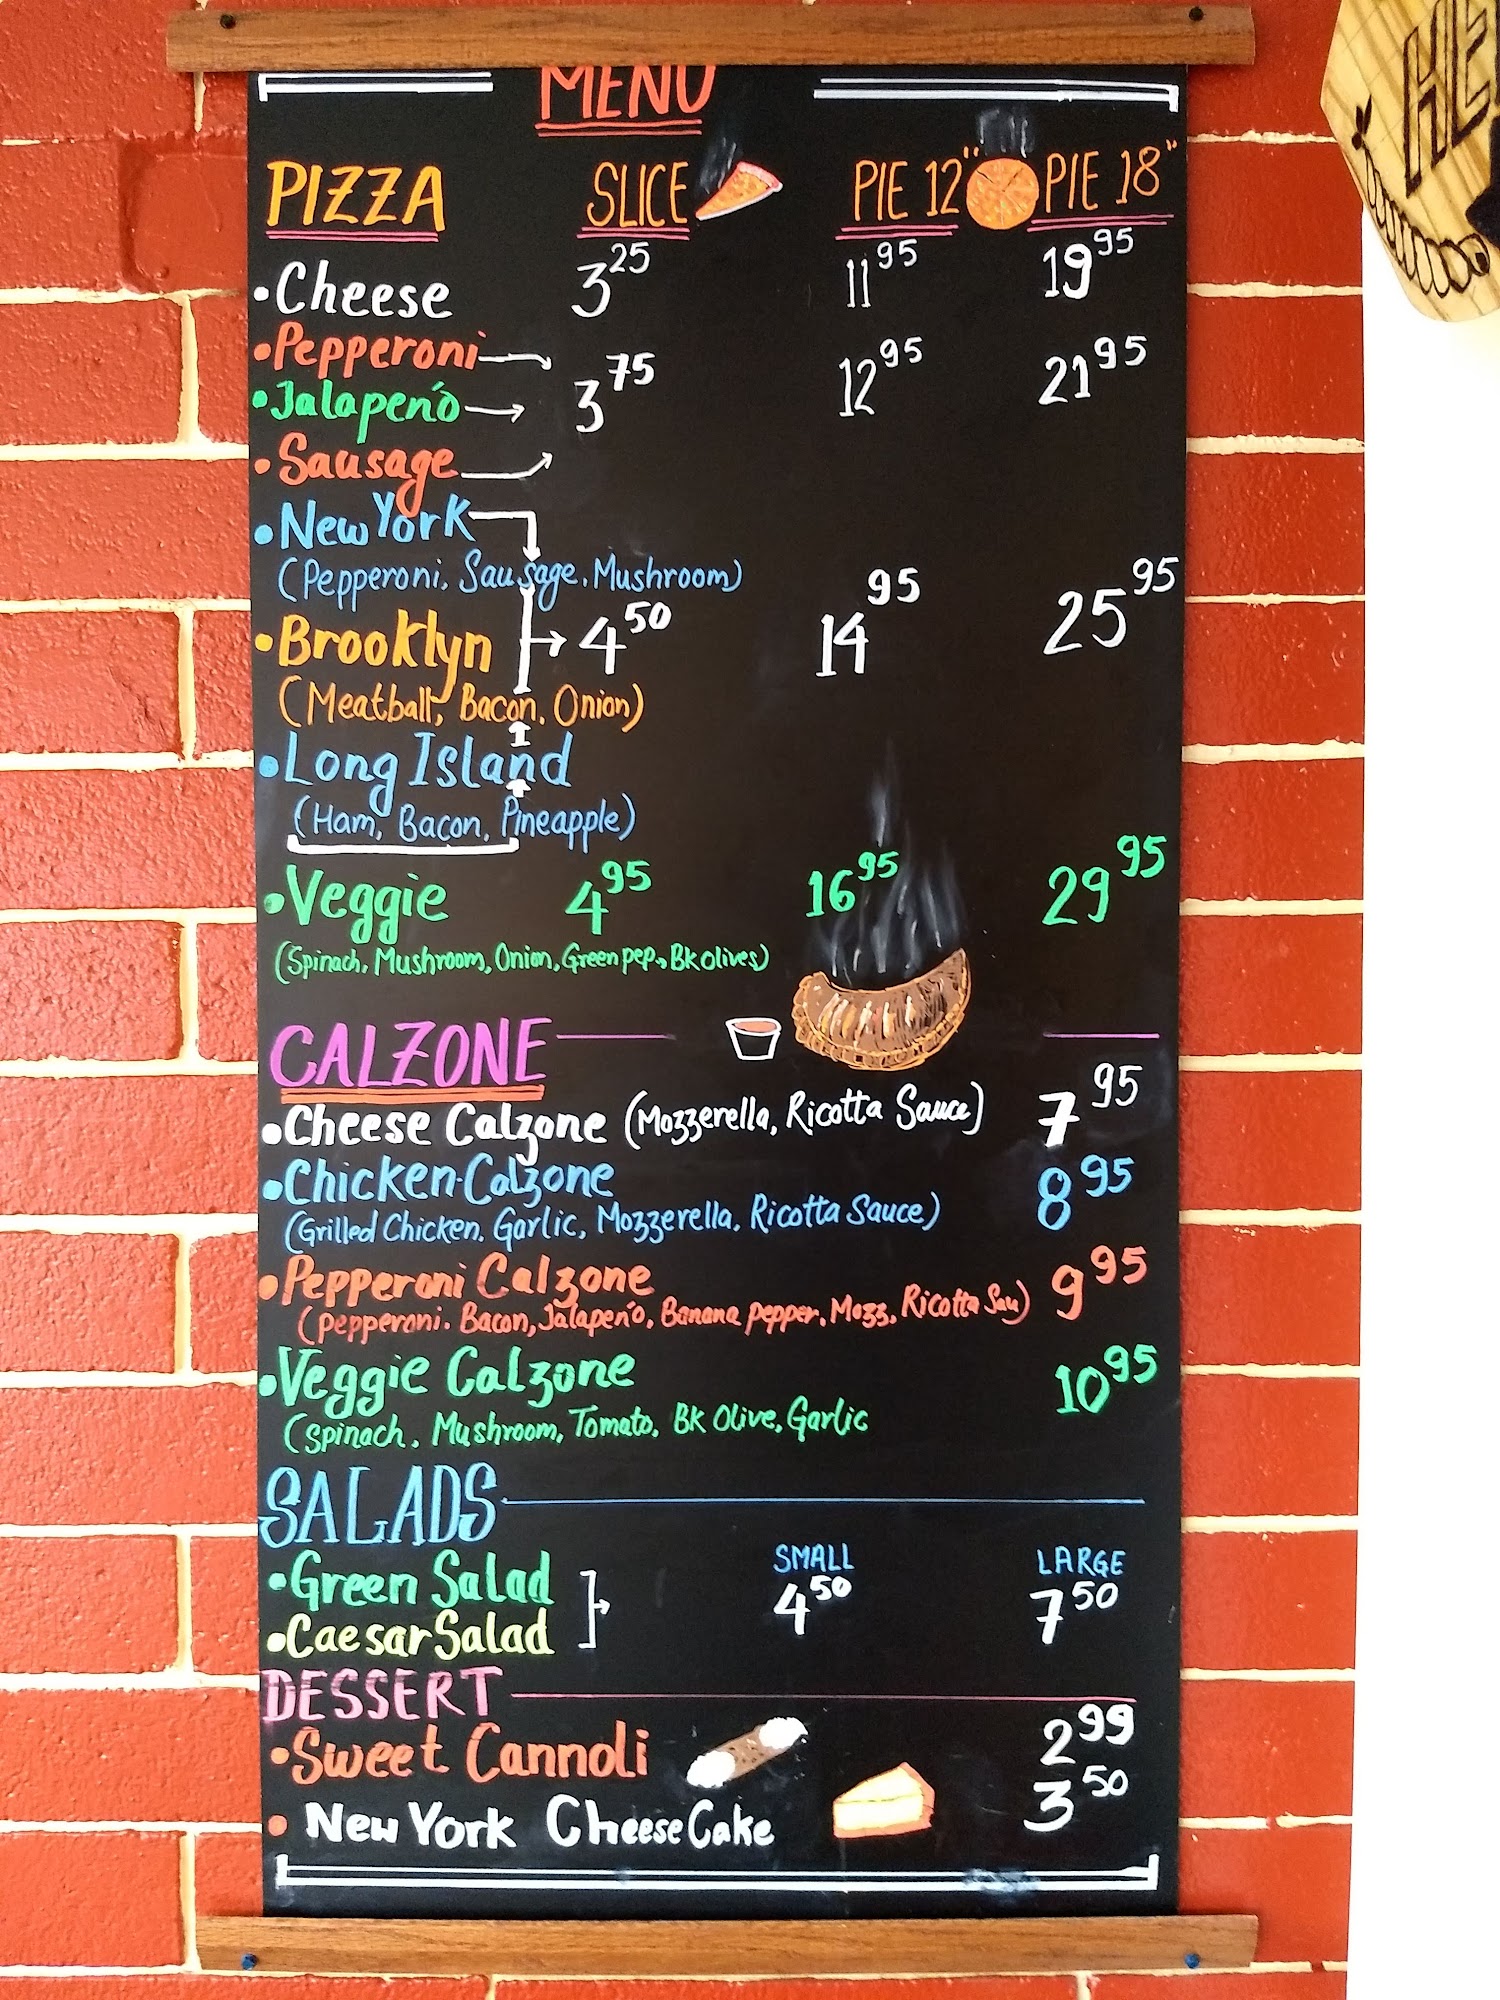 MENU
PIZZA SLICE PIE 12" PIE 18"
•Cheese 3 25 11 95 19 95
•Pepperoni
•Jalapenó 3 75 12 95 21 95
•Sausage
•New York
(Pepperoni, Sausage, Mushroom)
•Brooklyn 4 50 14 95 25 95
(Meatball, Bacon, Onion)
•Long Island
(Ham, Bacon, Pineapple)
•Veggie 4 95 16 95 29 95
(Spinach, Mushroom, Onion, Green pep., Bk olives)
CALZONE
•Cheese Calzone (Mozzerella, Ricotta Sauce) 7 95
•Chicken Calzone 8 95
(Grilled Chicken, Garlic, Mozzerella, Ricotta Sauce)
•Pepperoni Calzone 9 95
(Pepperoni. Bacon, Jalapenó, Banana pepper, Mozz, Ricotta Sau)
•Veggie Calzone 10 95
(Spinach, Mushroom, Tomato, Bk Olive, Garlic
SALADS
SMALL LARGE
•Green Salad 4 50 7 50
•Caesar Salad
DESSERT
•Sweet Cannoli 2 99
• New York CheeseCake 3 50